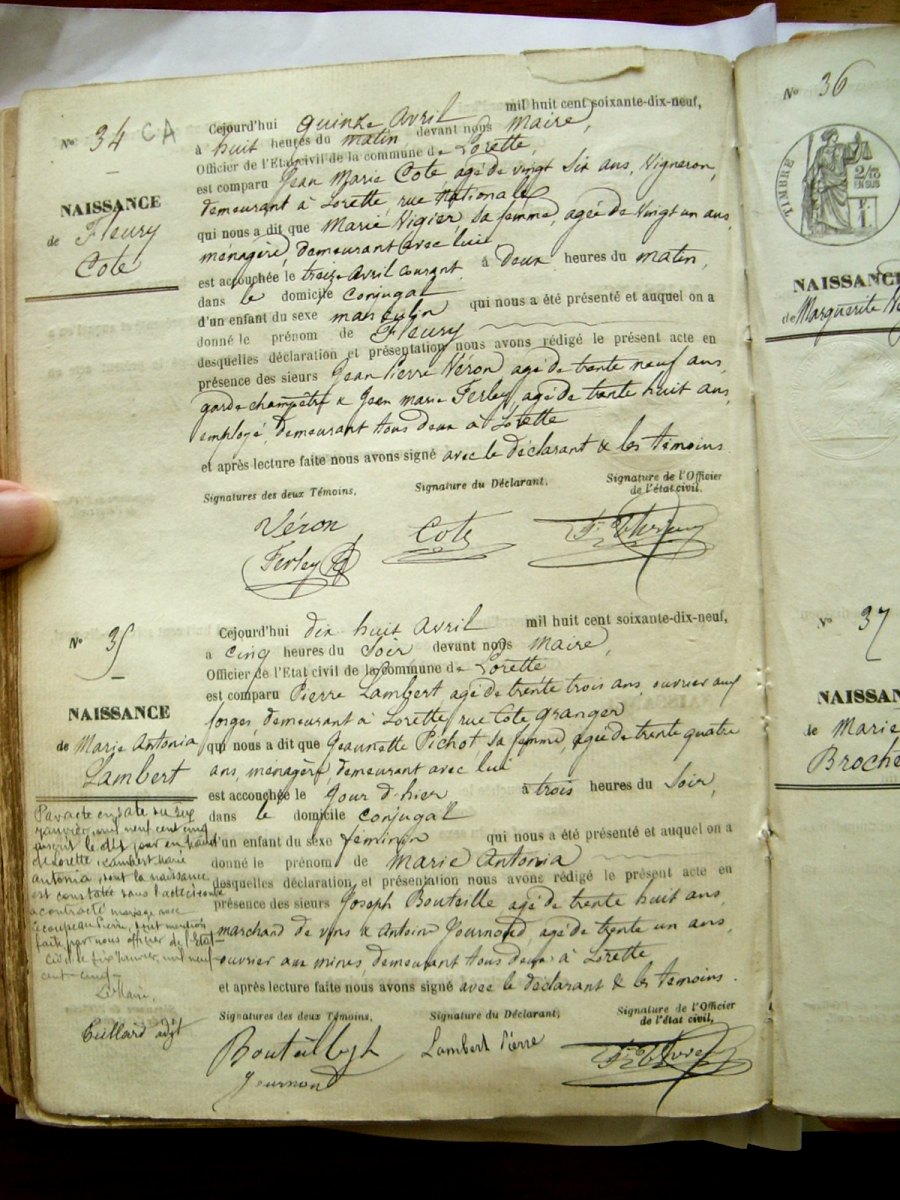 N° 34 CA
NAISSANCE
de Fleury
Cote
Cejourd'hui quinze Avril mil huit cent soixante-dix-neuf,
à huit heures du matin devant nous Maire,
Officier de l'Etat civil de la commune de Lorette,
est comparu Jean Marie Cote agé de vingt six ans, Vigneron,
demeurant à Lorette, rue Nationale
qui nous a dit que Marie Vigier, sa femme, agée de Vingt un ans,
ménagère, demeurant avec lui
est accouchée le treize Avril courant à deux heures du matin,
dans le domicile conjugal
d'un enfant du sexe masculin qui nous a été présenté et auquel on a
donné le prénom de Fleury
desquelles déclaration et présentation nous avons rédigé le présent acte en
présence des sieurs Jean Pierre Véron agé de trente neuf ans,
garde champêtre & Jean Marie Ferley, agé de trente huit ans,
employé, demeurant tous deux à Lorette
et après lecture faite nous avons signé avec le déclarant & les témoins.
Signatures des deux Témoins, Signature du Déclarant, Signature de l'Officier
de l'état civil,
Véron
Ferley Cote
N° 35
NAISSANCE
de Marie Antonia
Lambert
Cejourd'hui dix huit Avril mil huit cent soixante-dix-neuf,
a cinq heures du Soir devant nous Maire,
Officier de l'Etat civil de la commune de Lorette
est comparu Pierre Lambert agé de trente trois ans, ouvrier aux
forges, demeurant à Lorette, rue Cote Granger
qui nous a dit que Jeannette Pichot, sa femme, agée de trente quatre
ans, ménagère, demeurant avec lui
est accouchée le jour d'hier à trois heures du Soir,
dans le domicile conjugal
d'un enfant du sexe féminin qui nous a été présenté et auquel on a
donné le prénom de Marie Antonia
desquelles déclaration et présentation nous avons rédigé le présent acte en
présence des sieurs Joseph Bouteille agé de trente huit ans,
marchand de vins & Antoine Journoud, agé de trente un ans,
ouvrier aux mines, demeurant tous deux à Lorette
et après lecture faite nous avons signé avec le déclarant & les témoins.
Signatures des deux Témoins, Signature du Déclarant, Signature de l'Officier
de l'état civil,
Lambert Pierre
Journoud
Par acte en date du six
Janvier, mil neuf cent cinq
inscrit le dit jour en
de Lorette, Lambert Marie
Antonia, dont la naissance
est constatée sous l'acte ci-contre
a contracté mariage avec
Pierre, dont mention
faite par nous officier de l'Etat-
Civil le six Janvier, mil neuf
cent-cinq
Le Maire,
adjt
N° 36
TIMBRE
2/10
EN SUS
NAISSANCE
de Marguerite
N° 37
NAISSAN
de Marie
Broche